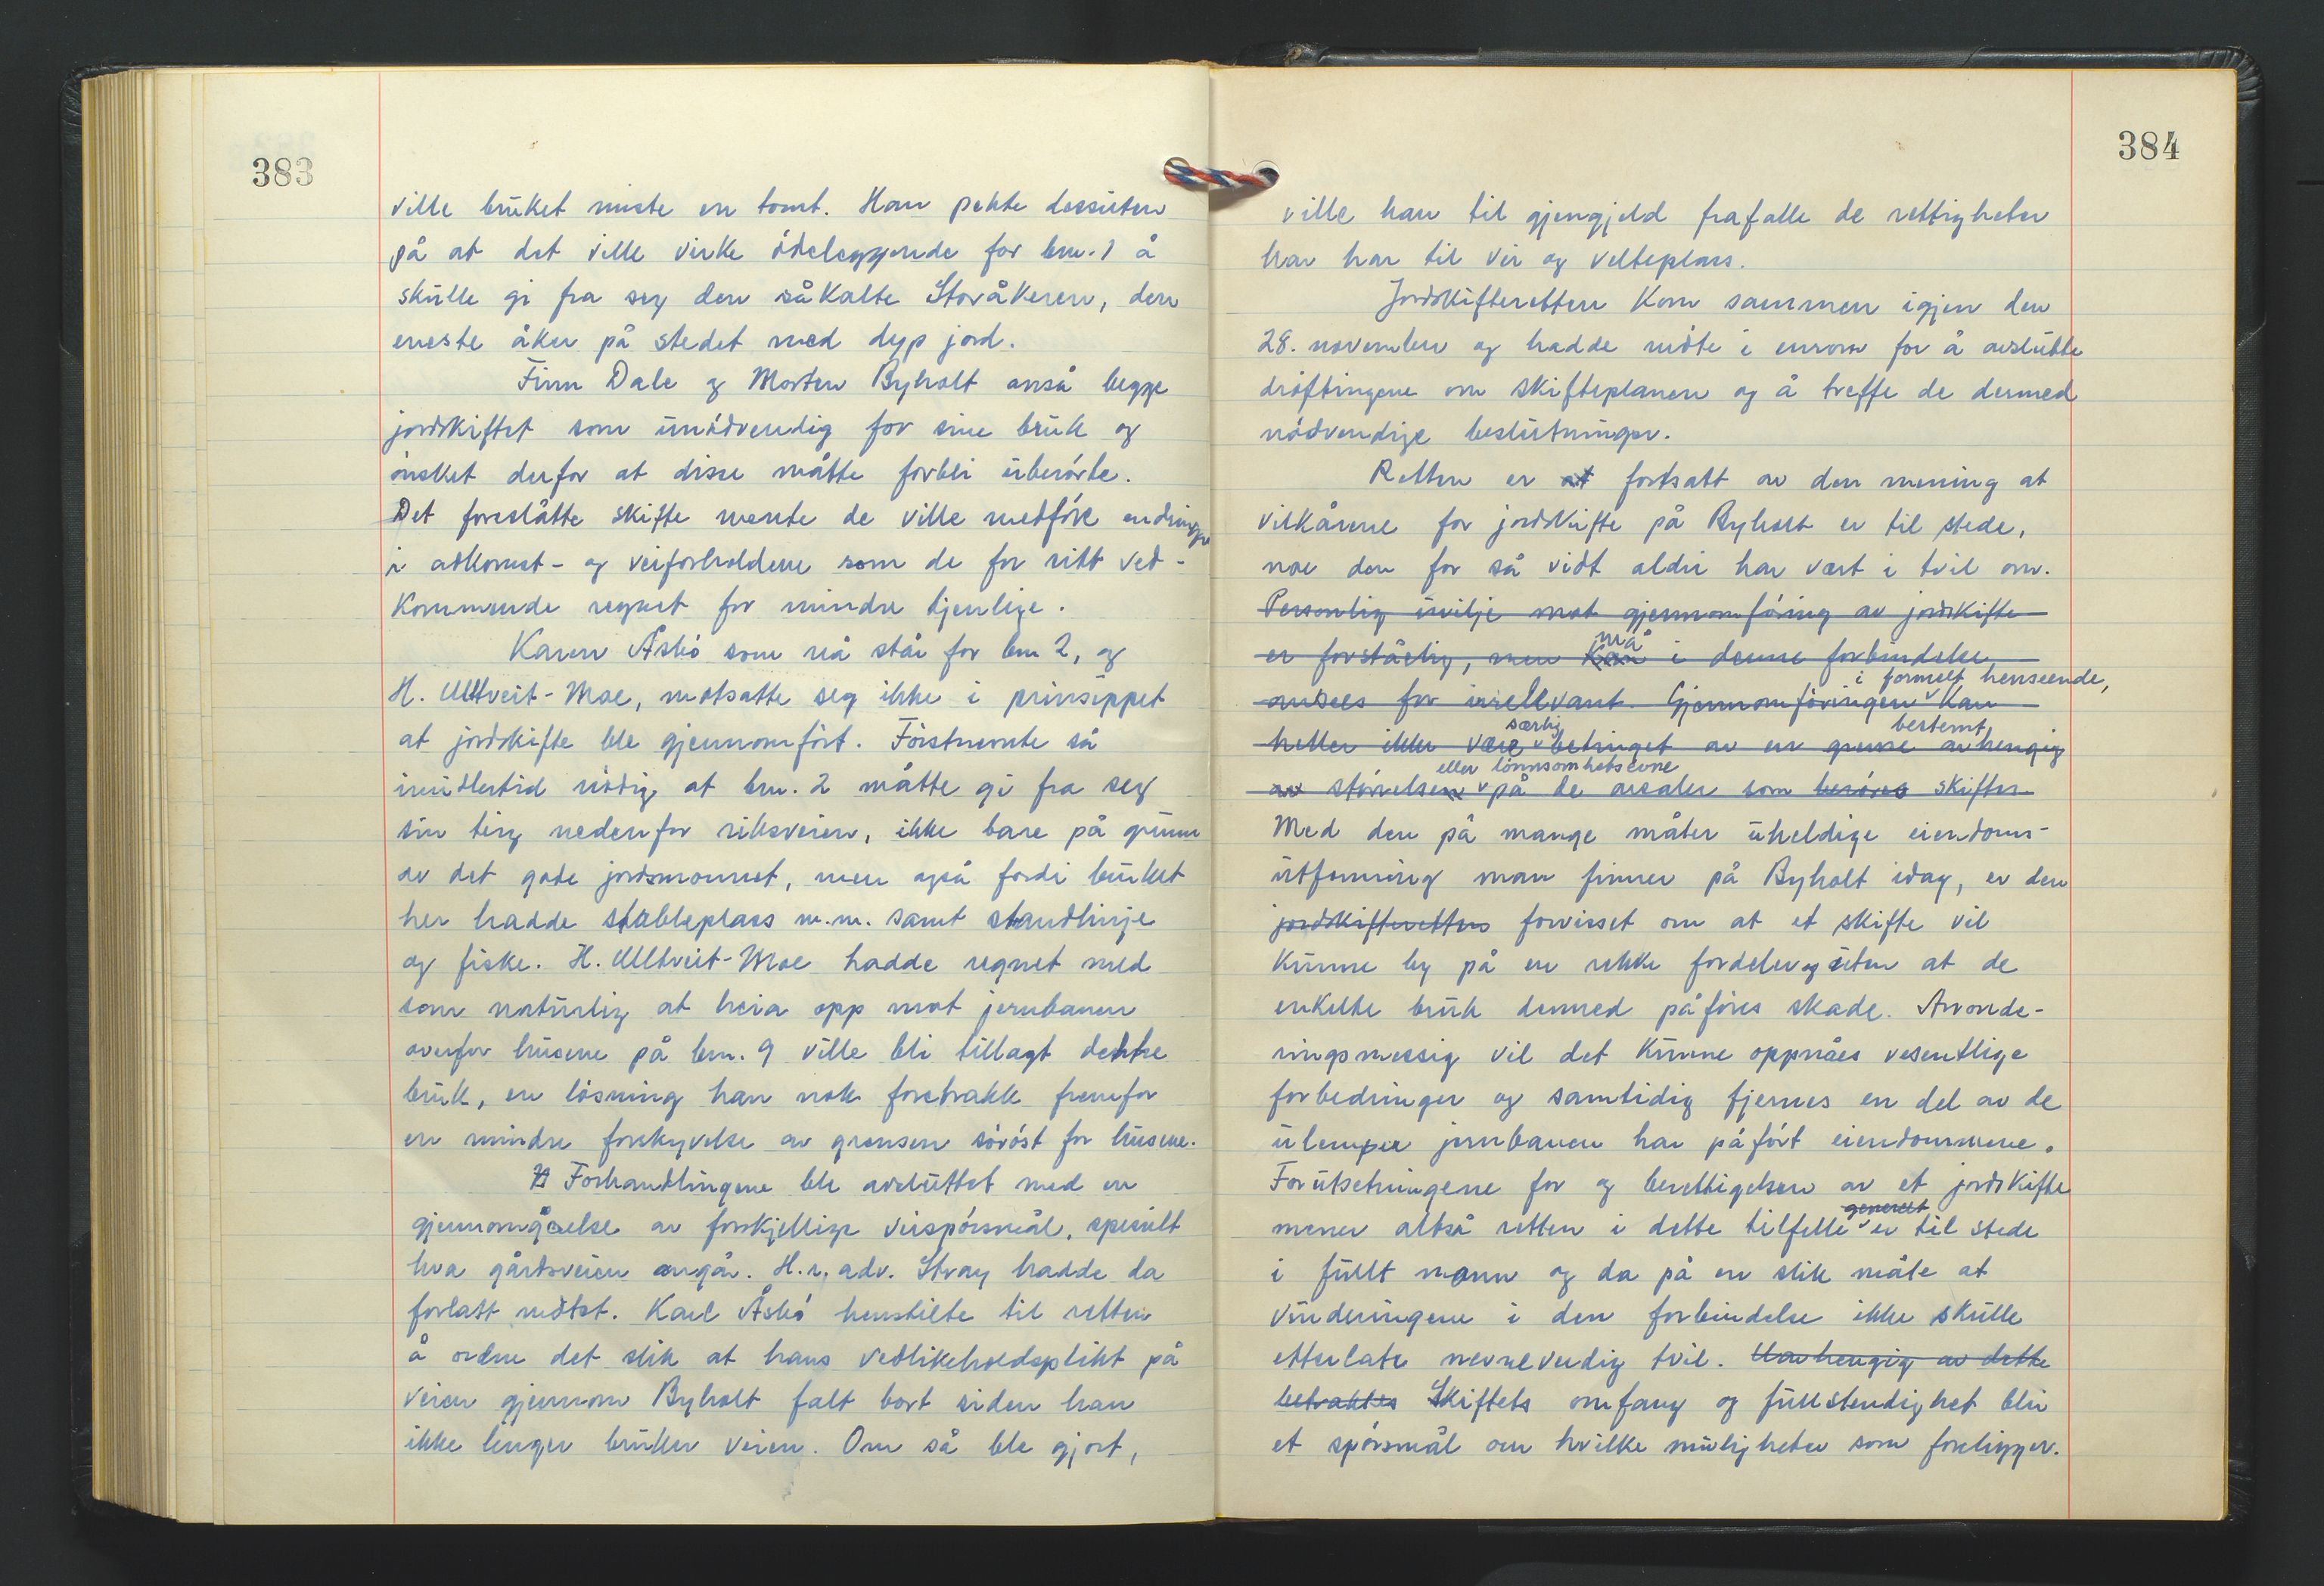 383
ville bruket miste en tomt. Han pekte dessuten
på at det ville virke ödeleggende for bnr. 1 å
skulle gi fra seg den såkalte Storåkeren, den
eneste åker på stedet med dyp jord.
Finn Dale og Morten Byholt anså begge
jordskiftet som unödvendig for sine bruk og
önsket derfor at disse måtte forbli uberörte.
Det foreslåtte skifte mente de ville medföre endringer
i adkomst- og veiforholdene som de for sitt ved-
kommende regnet for mindre tjenlige.
Karen Åsbö som nå står for bnr 2, og
H. Ulltveit-Moe, motsatte seg ikke i prinsippet
at jordskifte ble gjennomfört. Förstnevnte så
imidlertid nödig at bnr. 2 måtte gi fra seg
sin teig nedenfor riksveien, ikke bare på grunn
av det gode jordsmonnet, men også fordi bruket
her hadde stableplass m.m. samt strandlinje
og fiske. H. Ulltveit-Moe hadde regnet med
som naturlig at heia opp mot jernbanen
ovenfor husene på bnr. 9 ville bli tillagt dette
bruk, en lösning han nok foretrakk fremfor
en mindre forskyvelse av grensen söröst for husene.
Forhandlingene ble avsluttet med en
gjennomgåelse av forskjellige veispörsmål, spesielt
hva gårdsveien angår. H.r. adv. Stray hadde da
forlatt mötet. Karl Åsbö henstilte til retten
å ordne det slik at hans vedlikeholdsplikt på
veien gjennom Byholt falt bort siden han
ikke lenger bruker veien. Om så ble gjort,
384
ville han til gjengjeld frafalle de rettigheter
han har til vei og velteplass.
Jordskifteretten kom sammen igjen den
28. november og hadde möte i enrom for å avslutte
dröftingene om skifteplanen og å treffe de dermed
nödvendige beslutninger.
Retten er at fortsatt av den mening at
vilkårene for jordskifte på Byholt er til stede,
noe den for så vidt aldri har vært i tvil om.
Personlig uvilje mot gjennomföring av jordskifte
må
er forståelig, men kan i denne forbindelse
i formelt henseende,
ansees for irrellevant. Gjennomföringen kan
særlig bestemt
heller ikke være betinget av en grense avhengig
eller lönnsomhetsevne
av störrelsen på de arealer som beröres skiftes
Med den på mange måter uheldige eiendoms-
utforming man finner på Byholt idag, er den
jordskifterettens forvisset om at et skifte vil
kunne by på en rekke fordeler og uten at de
enkelte bruk dermed påföres skade. Arronde-
ringsmessig vil det kunne oppnåes vesentlige
forbedringer og samtidig fjernes en del av de
ulemper jernbanen har påfört eiendommene.
Forutsetningene for og berettigelsen av et jordskifte
generelt
mener altså retten i dette tilfelle er til stede
i fullt monn og da på en slik måte at
vurderingene i den forbindelse ikke skulle
etterlate nevneverdig tvil. Uavhengig av dette
betraktes Skiftets omfang og fullstendighet blir
et spörsmål om hvilke muligheter som foreligger.